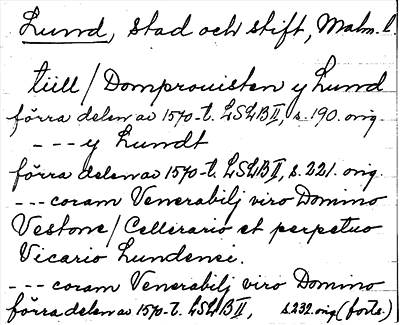 Lund, stad och stift, Malm. l.
till / Domprouisten y Lund
förra delen av 1570-t. LSLB II, s. 190. orig.
--- y Lundt
förra delen av 1570-t. LSLB II, s. 221. orig.
--- coram Venerabilj viro Domino
Vestone / Cellerario et perpetuo
Vicario Lundensi.
--- coram Venerabilj viro Domino
förra delen av 1570-t. LSLB II, s. 232. orig (forts.)